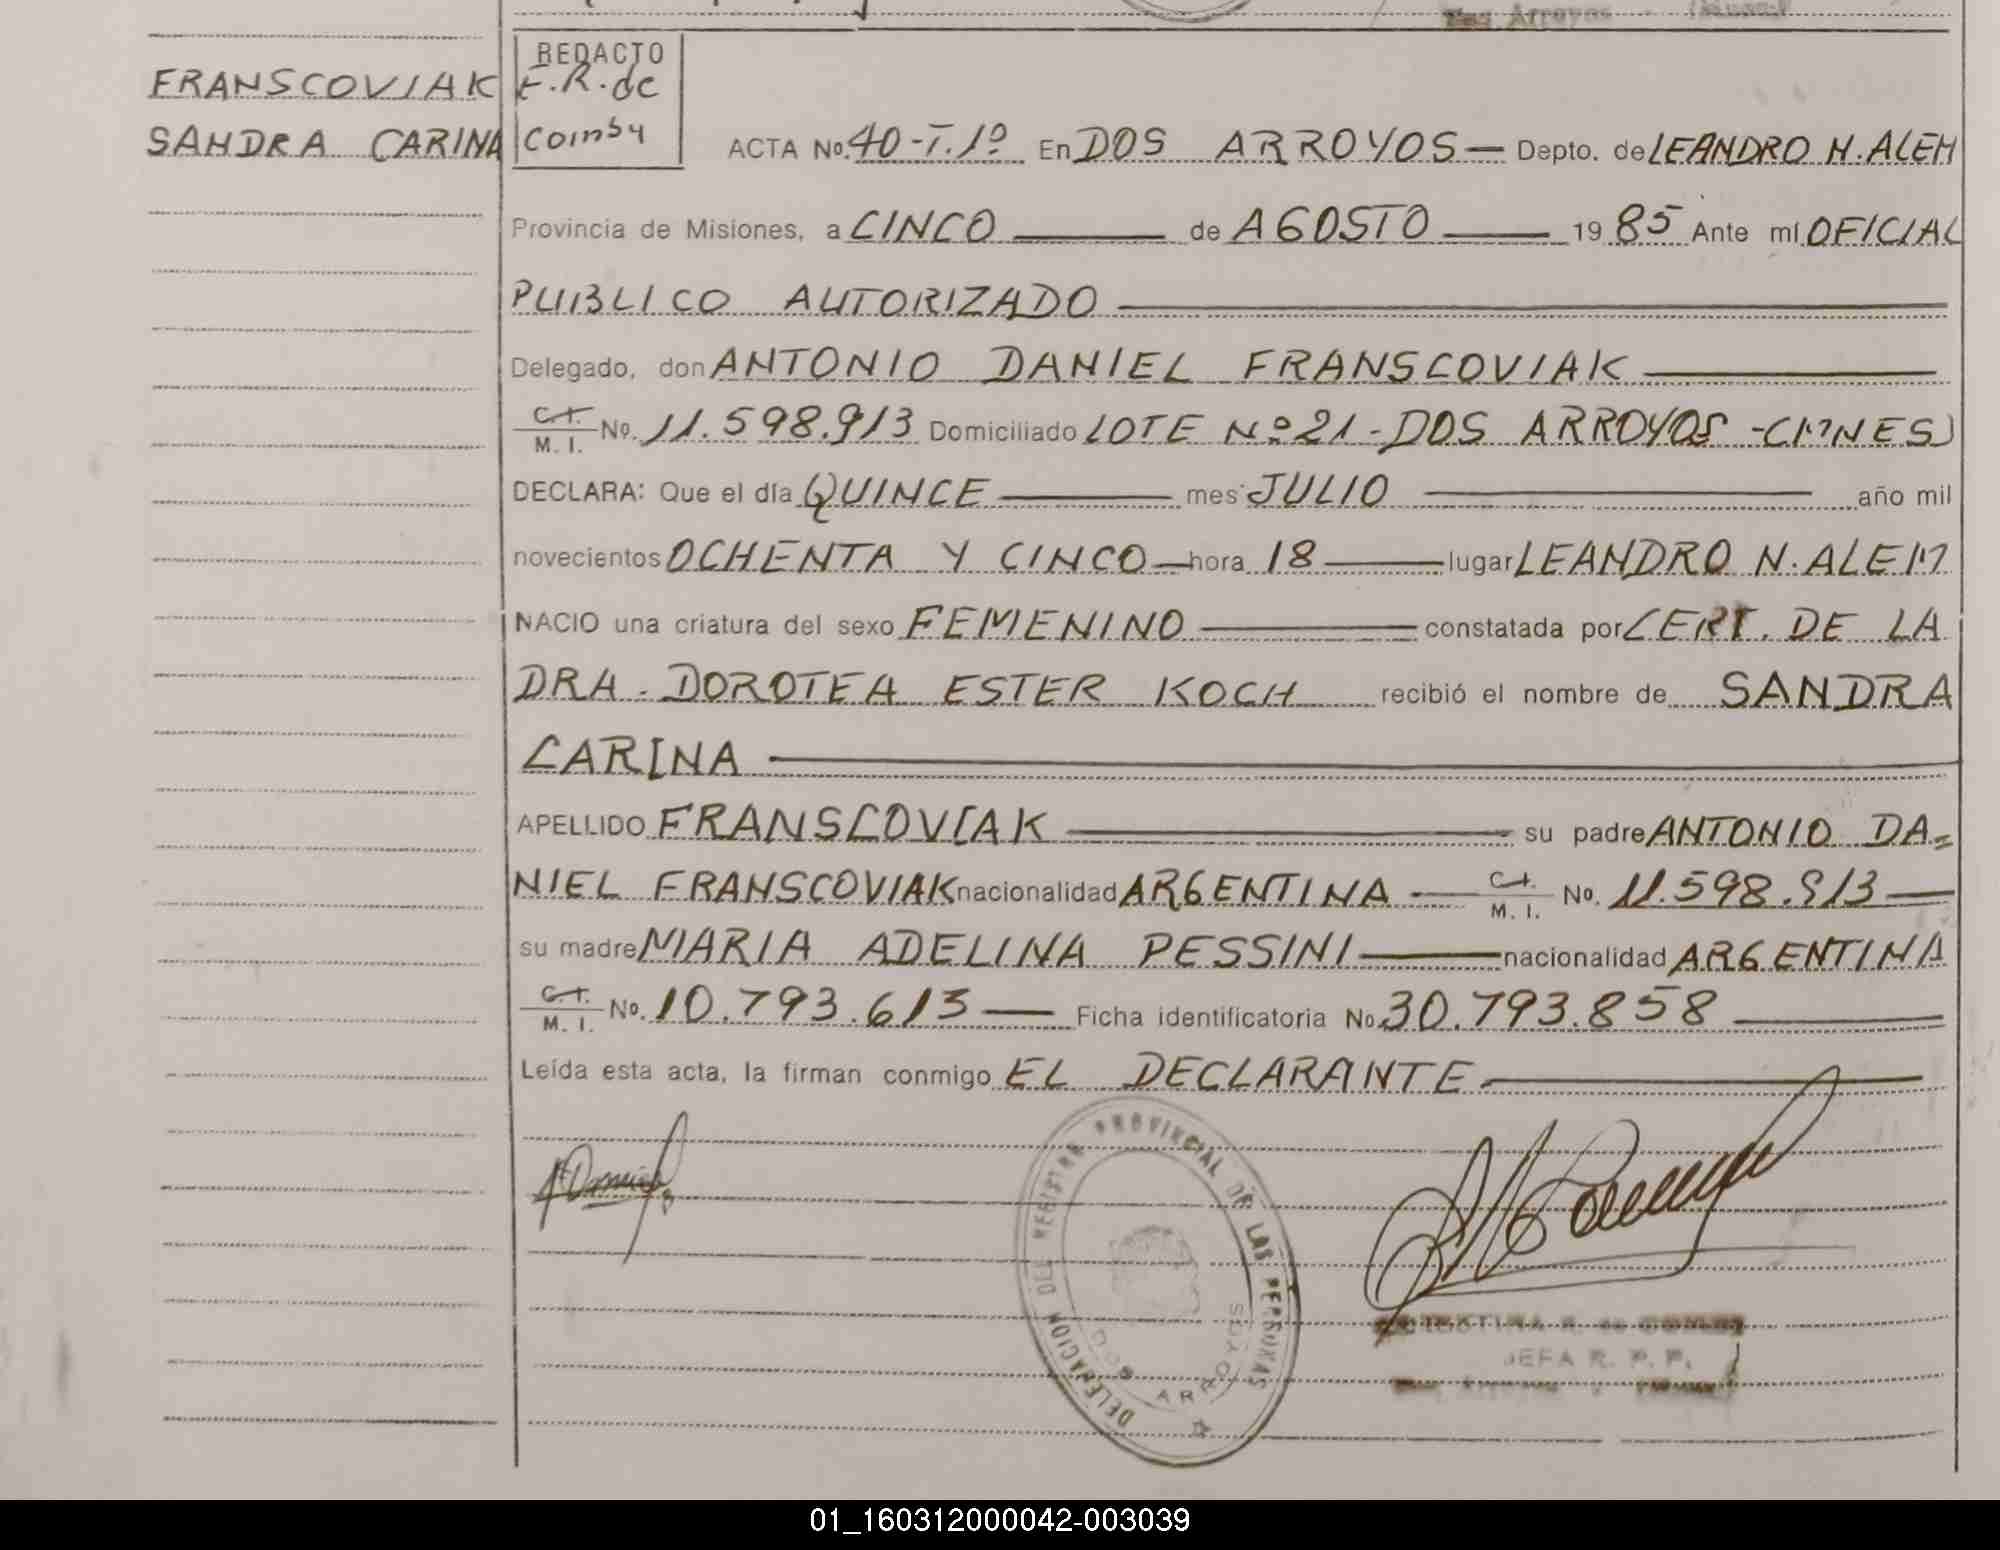 FRANSCOVIAK
SANDRA CARINA
REDACTO
E.R. de
ACTA No. 40-T.1º En DOS ARROYOS — Depto. de LEANDRO N. ALEM
Provincia de Misiones, a CINCO — de AGOSTO — 19 85 Ante mí OFICIAL
PUBLICO AUTORIZADO —
Delegado, don ANTONIO DANIEL FRANSCOVIAK —
C.I.
M. I. No. 11.598.913 Domiciliado LOTE Nº 21 - DOS ARROYOS - (MNES)
DECLARA: Que el día QUINCE — mes JULIO — año mil
novecientos OCHENTA Y CINCO — hora 18 — lugar LEANDRO N. ALEM
NACIO una criatura del sexo FEMENINO — constatada por CERT. DE LA
DRA. DOROTEA ESTER KOCH recibió el nombre de SANDRA
CARINA —
APELLIDO FRANSCOVIAK — su padre ANTONIO DA=
NIEL FRANSCOVIAK nacionalidad ARGENTINA — C.I. M. I. No. 11.598.913 —
su madre MARIA ADELINA PESSINI — nacionalidad ARGENTINA
C.I.
M. I. No. 10.793.613 — Ficha identificatoria No. 30.793.858 —
Leída esta acta, la firman conmigo EL DECLARANTE —
DELEGACION DEL REGISTRO PROVINCIAL DE LAS PERSONAS
DOS ARROYOS
JEFA R. P. P.
01_160312000042-003039